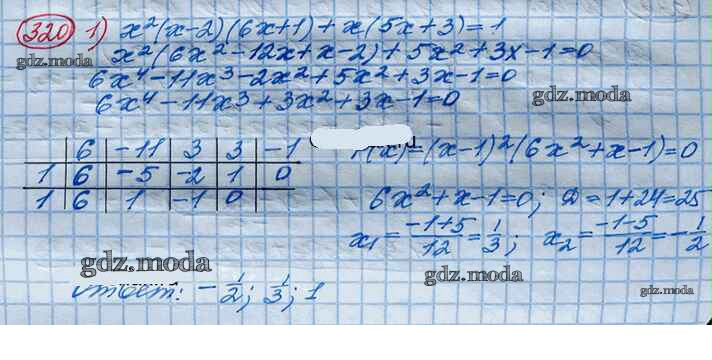 320 1) x²(x-2)(6x+1)+x(5x+3)=1
x²(6x²-12x+x-2)+5x²+3x-1=0
gdz.moda
6x⁴-11x³-2x²+5x²+3x-1=0
gdz.moda
6x⁴-11x³+3x²+3x-1=0
6 -11 3 3 -1
1 6 -5 -2 1 0
1 6 1 -1 0
(x)=(x-1)²(6x²+x-1)=0
6x²+x-1=0; D=1+24=25
x₁=(-1+5)/12=1/3; x₂=(-1-5)/12=-1/2
gdz.moda
gdz.moda
gdz.moda
Ответ: -1/2; 1/3; 1